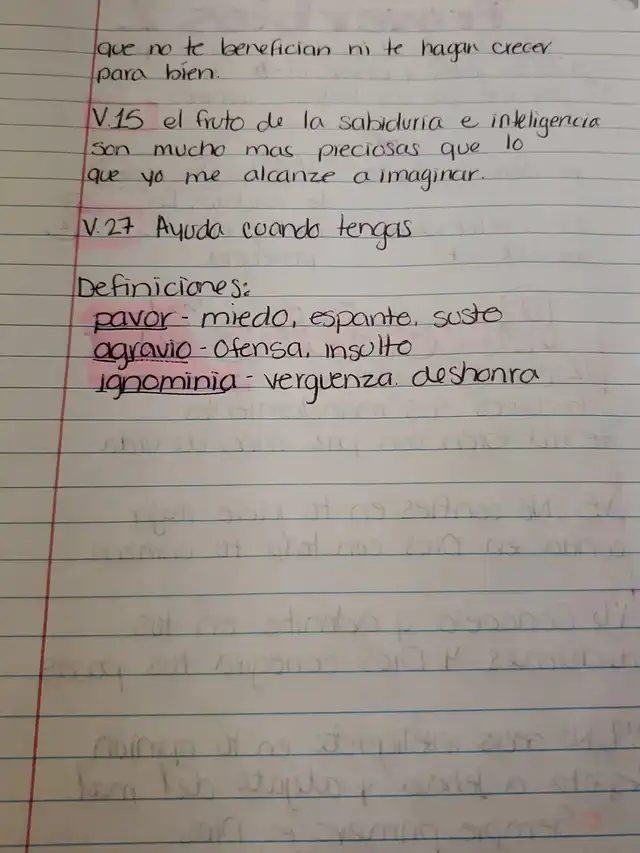 que no te benefician ni te hagan crecer
para bien.
V.15 el fruto de la sabiduria e inteligencia
son mucho mas preciosas que lo
que yo me alcanze a imaginar.
V.27 Ayuda cuando tengas
Definiciones:
pavor - miedo, espanto, susto
agravio - ofensa, insulto
ignominia - verguenza. deshonra